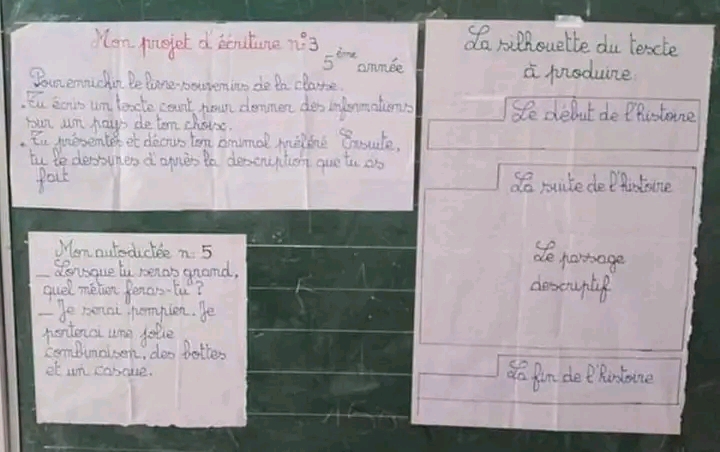 Mon projet d'écriture n°3
5ème année
Pour enrichir le livre-souvenirs de la classe.
. Tu écris un texte court pour donner des informations
sur un pays de ton choix.
. Tu présentes et décris ton animal préféré Ensuite,
tu le dessines d'après la description que tu as
fait
Mon autodictée n: 5
_ Lorsque tu seras grand,
quel métier feras-tu ?
_ Je serai pompier. Je
porterai une jolie
combinaison, des bottes
et un casque.
La silhouette du texte
à produire
Le début de l'histoire
La suite de l'histoire
Le passage
descriptif
La fin de l'histoire